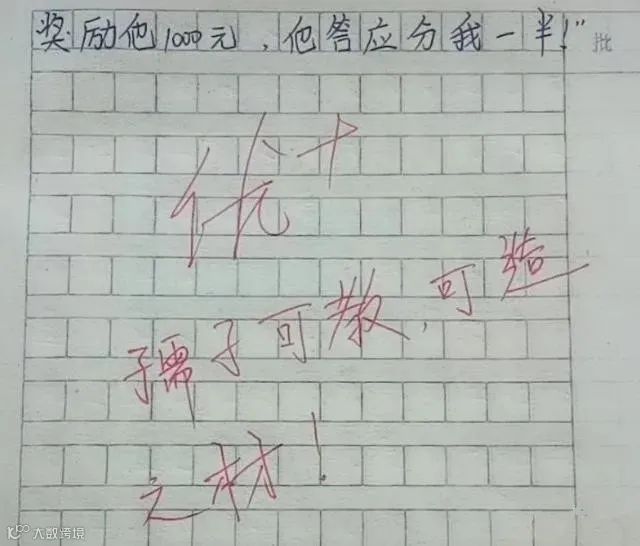 奖励他1000元，他答应分我一半！”
批
优+
孺子可教，可造
之材！
大数跨境